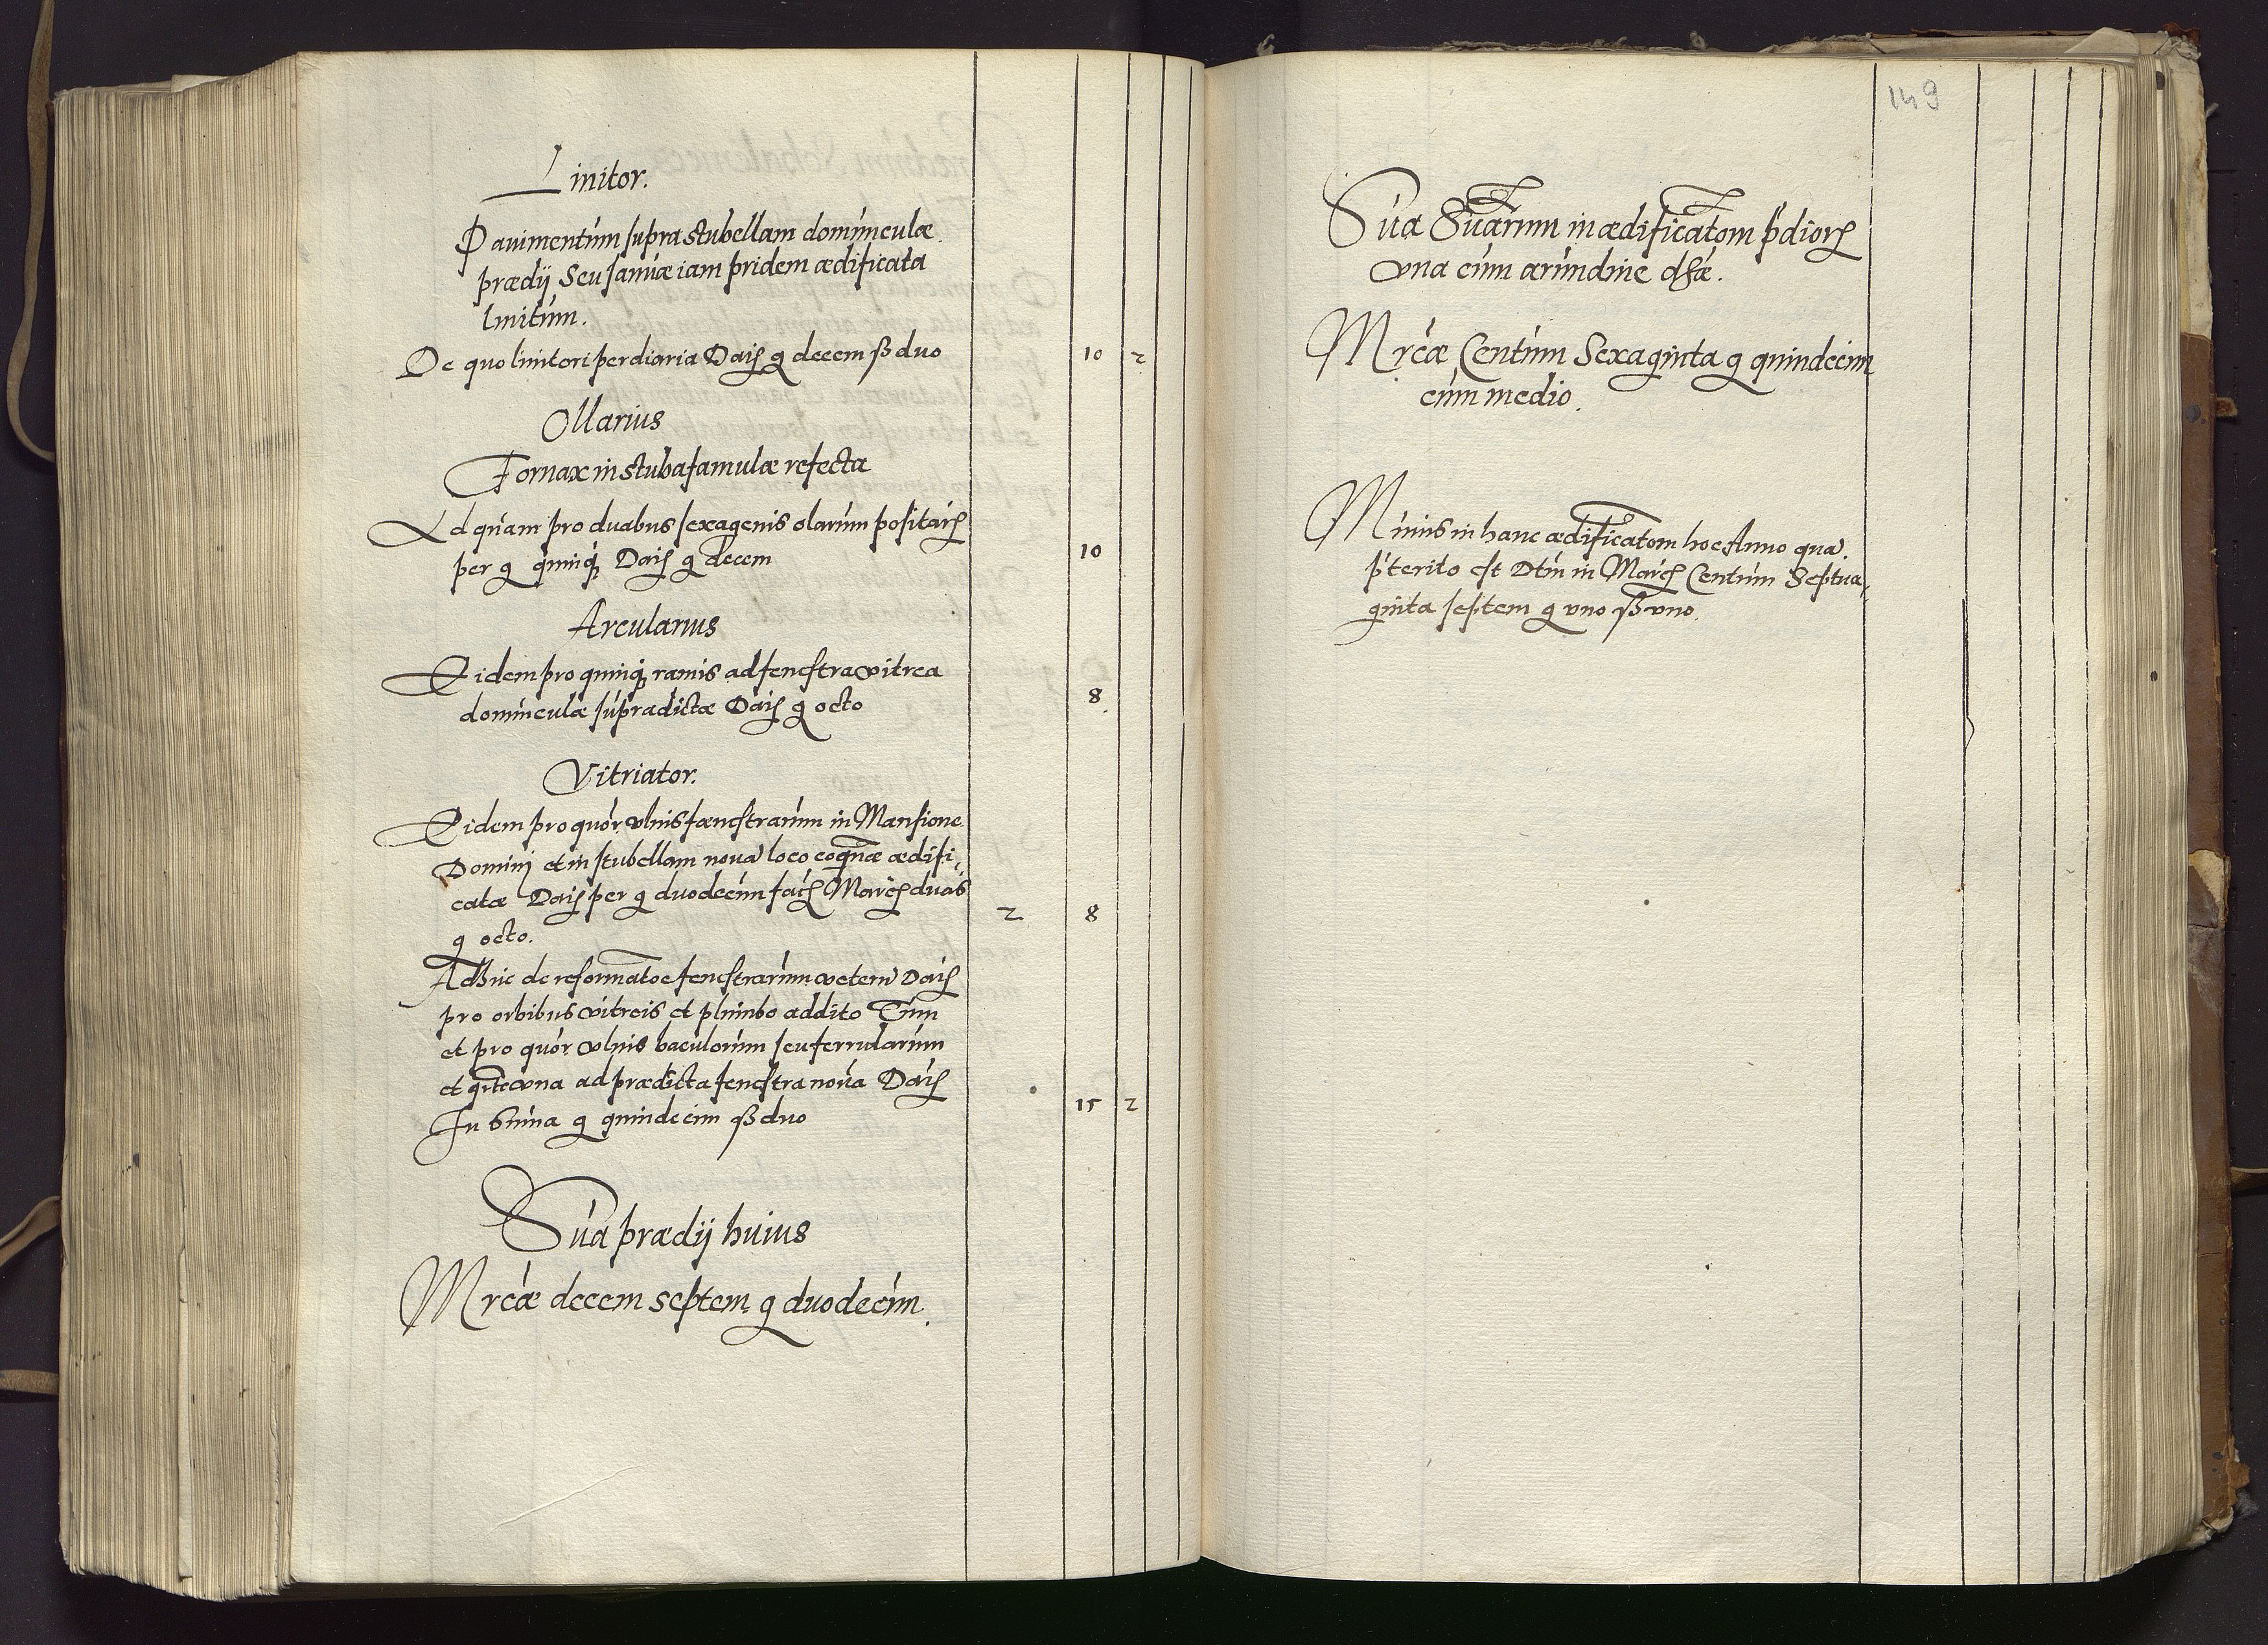 Linitor.
Pauimentum supra stubellam domunculæ
prædij Seu Januæ iam pridem ædificata
linitum.
De quo linitori per diaria Dat̃ g decem ß duo 10 2
Ollarius
Fornax in stuba famulæ refecta
Ad quam pro duabus sexagenis olarum positar̃
per g quinq; Dat̃ g decem 10
Arcularius
Eidem pro quinq; ramis ad fenestra vitrea
domunculæ supradictæ Dat̃ g octo 8
Vitriator.
Eidem pro quor vlnis fænestrarum in Mansione
Domini et in stubellam noua loco coquinæ ædifi,
catæ Dat̃ per g duodecim facit̃ Marc̃ duas 2 8
g octo.
Adhuc de reformatoe fenestrarum veterũ Dat̃
pro orbibus vitreis et plumbo addito Tum
et pro quor vlnis baculorum seu ferrularum
et vna ad prædicta fenestra noua Dat̃
In Suma g quindecim ß duo 15 2
Sũa prædij huius
Mrcæ decem septem g duodecim.
149
Sũa Sũarum in ædificatõm p̃dior̃
vna cum arundine
Mrcæ Centum Sexaginta g quindecim
cum medio.
Minus in hanc ædificatõm hoc Anno quã
p̃terito est Dtũm in Marc̃ Centum Septua,
ginta septem g vno ß vno.